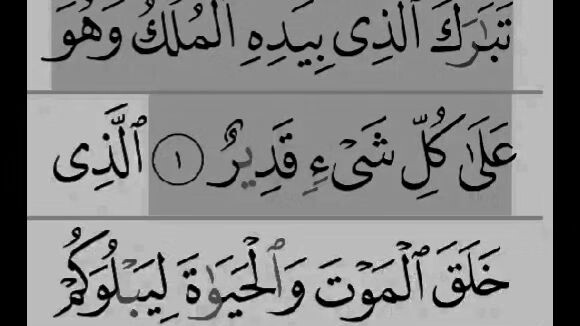 تَبَٰرَكَ ٱلَّذِى بِيَدِهِ ٱلْمُلْكُ وَهُوَ
عَلَىٰ كُلِّ شَىْءٍ قَدِيرٌ ١ ٱلَّذِى
خَلَقَ ٱلْمَوْتَ وَٱلْحَيَوٰةَ لِيَبْلُوَكُمْ